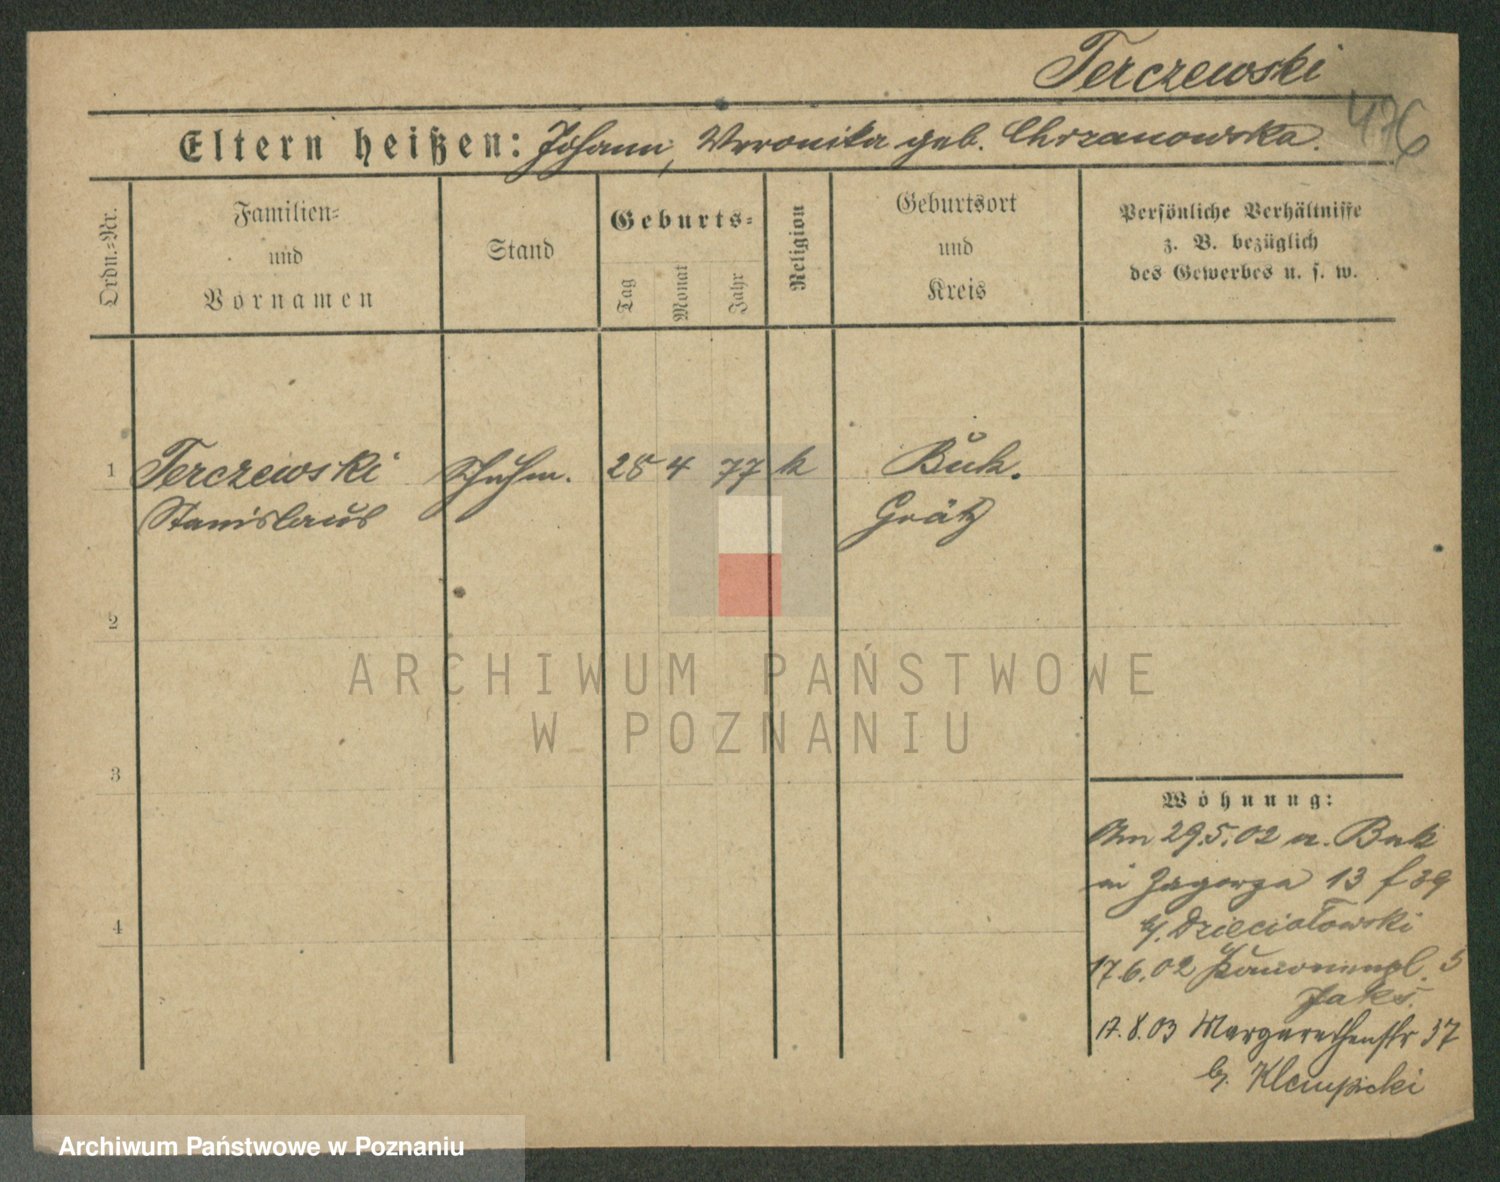 Terczewski
476
Eltern heißen: Johann, Veronika geb. Chrzanowska.
Ordn.-Nr.
Familien-
und
Vornamen
Stand
Geburts-
Tag
Monat
Jahr
Religion
Geburtsort
und
Kreis
Persönliche Verhältnisse
z. B. bezüglich
des Gewerbes u. s. w.
1 Terczewski Schuhm. 28 4 77 k Buk.
Stanislaus Grätz
2
ARCHIWUM PAŃSTWOWE
W POZNANIU
3
Wohnung:
Am 29.5.02 a. Buk
in Zagorze 13 f 39
b/. Dzieciołowski
17.6.02 5
Jaks.
17.8.03 Margarethenstr 37
b/. Klempicki
4
Archiwum Państwowe w Poznaniu